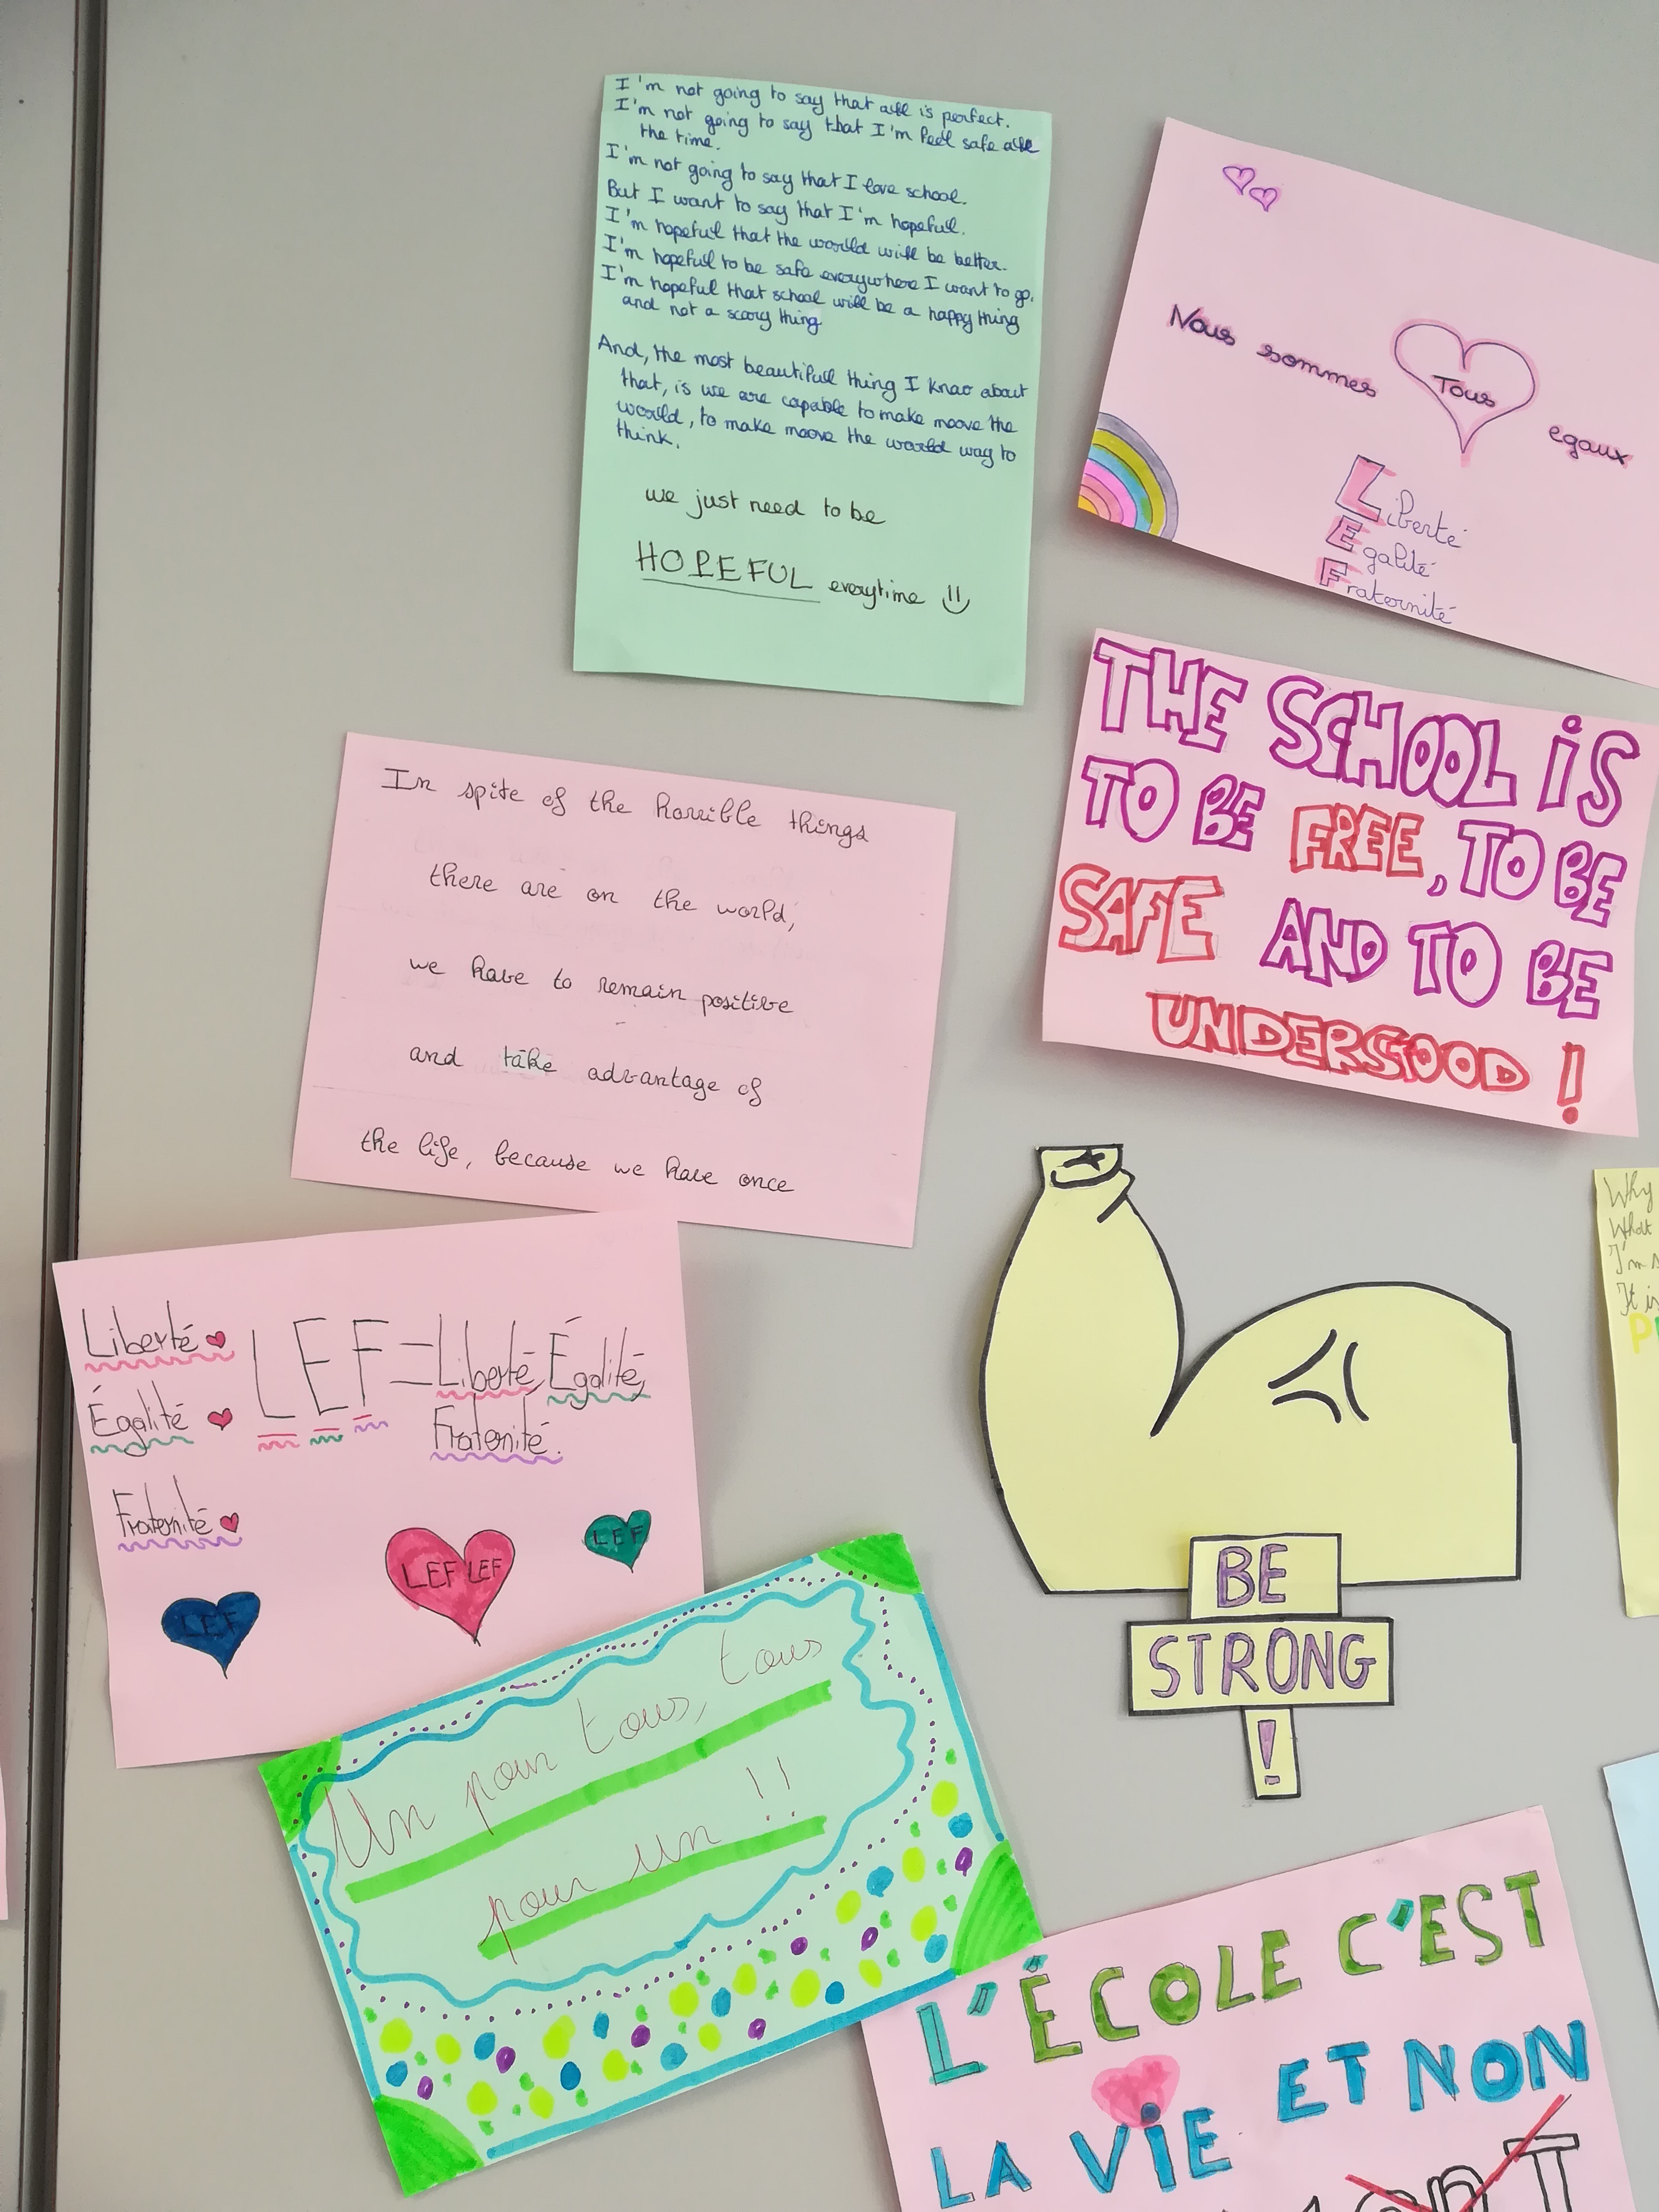 I'm not going to say that all is perfect.
I'm not going to say that I'm feel safe all
the time.
I'm not going to say that I love school.
But I want to say that I'm hopeful.
I'm hopefull that the world will be better.
I'm hopefull to be safe everywhere I want to go.
I'm hopefull that school will be a happy thing
and not a scary thing
And, the most beautifull thing I know about
that, is we are capable to make moove the
world, to make moove the world way to
think.
we just need to be
HOPEFUL everytime
Nous sommes Tous egaux
Liberté
Egalité
Fraternité
THE SCHOOL iS
TO BE FREE, TO BE
SAFE AND TO BE
UNDERSTOOD !
In spite of the horrible things
there are on the world,
we have to remain positive
and take advantage of
the life, because we have once
Liberté
Égalité
Fraternité
LEF = Liberté, Égalité,
Fraternité.
LEF
LEF LEF
LEF
BE
STRONG
!
Un pour tous, tous
pour un !!
L'ÉCOLE C'EST
LA ViE ET NON
Why
What
I'm
It is